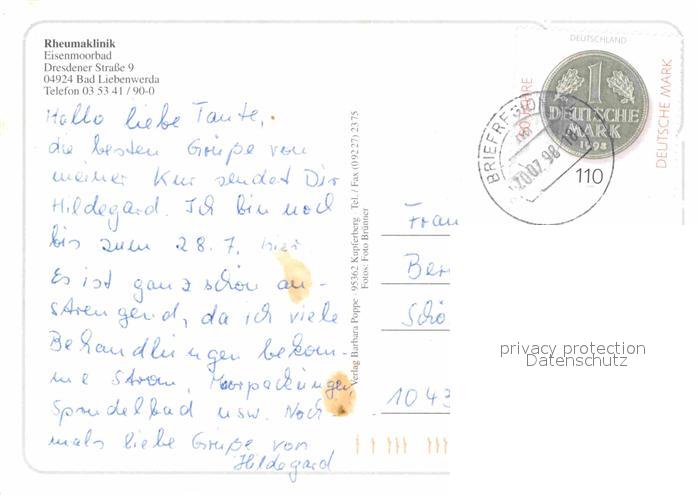 Rheumaklinik
Eisenmoorbad
Dresdener Straße 9
04924 Bad Liebenwerda
Telefon 03 53 41 / 90-0
Hallo liebe Tante,
die besten Grüße von
meiner Kur sendet Dir
Hildegard. Ich bin noch
bis zum 28.7. hier
Es ist ganz schön an-
strengend, da ich viele
Behandlungen bekom-
me Strom, Moorpackungen,
Sprudelbad usw. Noch-
mals liebe Grüße von
Hildegard
Verlag Barbara Poppe · 95362 Kupferberg Tel. / Fax (09227) 2375
Fotos: Foto Brünner
DEUTSCHLAND
50 JAHRE
DEUTSCHE MARK
1
DEUTSCHE
MARK
1998
110
20.07.98
Frau
Ber
Schö
1043
privacy protection
Datenschutz